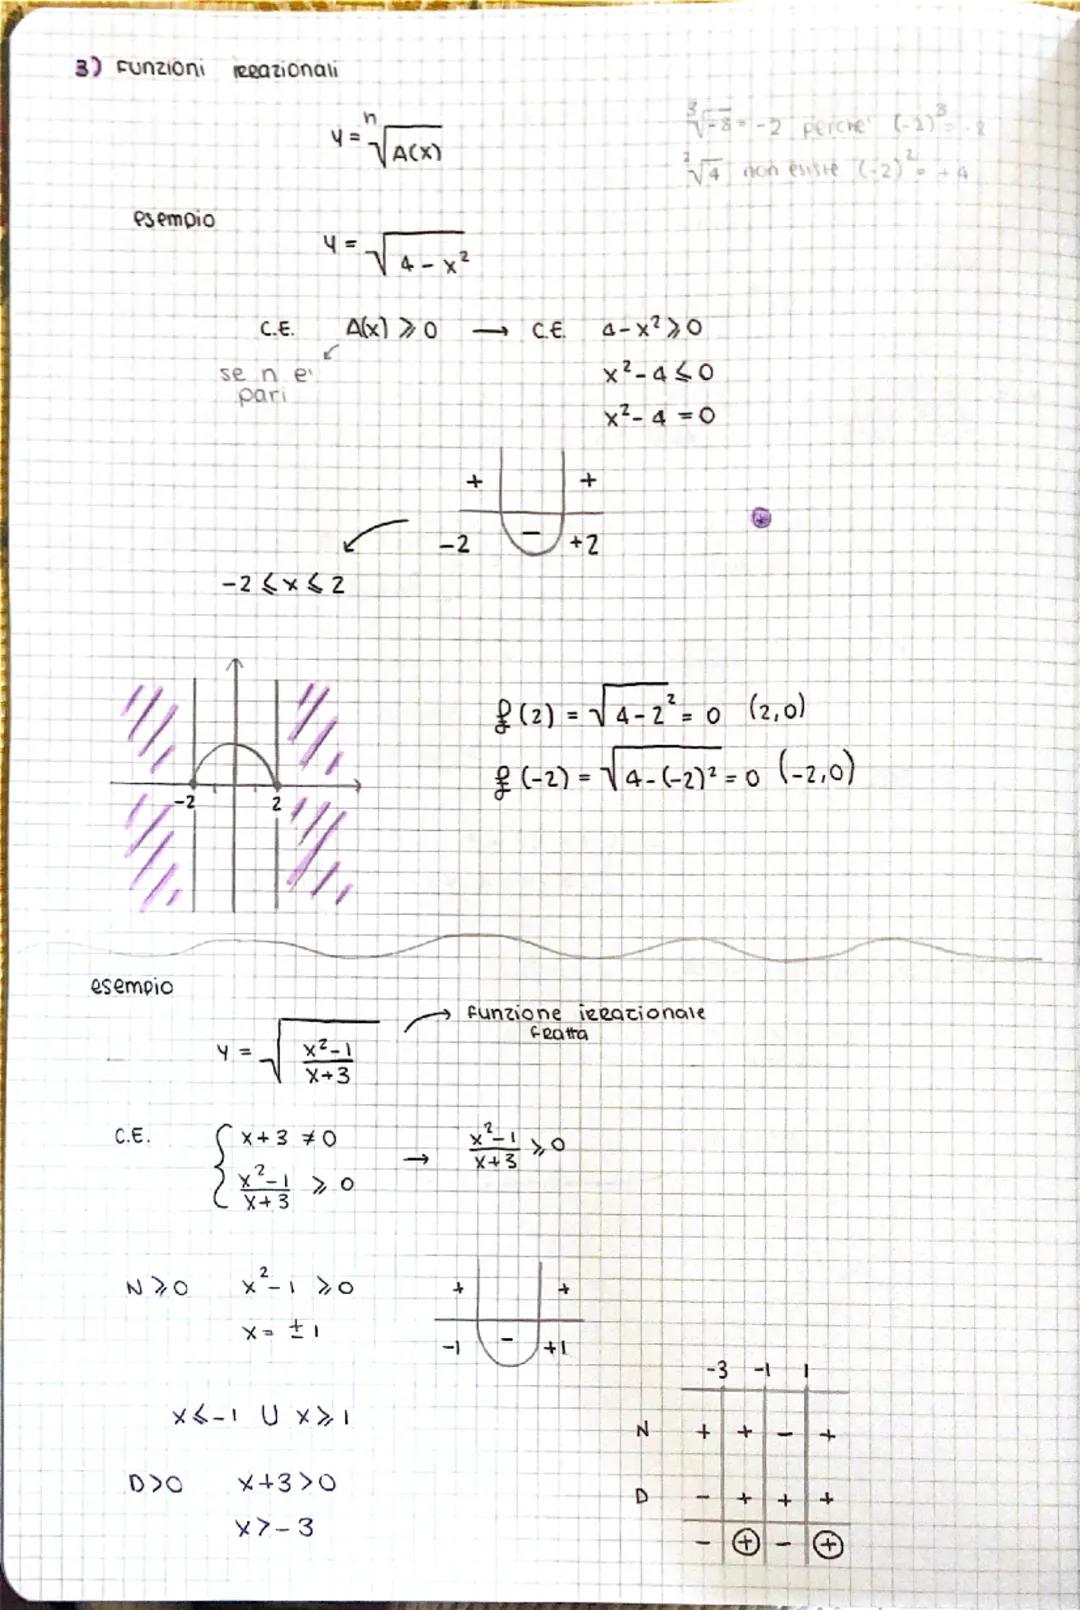 3) Funzioni irrazionali
y = ⁿ√A(x)
³√-8 = -2 perchè (-2)³ = -8
²√4 non esiste (-2)² = +4
esempio
y = √4 - x²
C.E. A(x) ⩾ 0 → C.E. 4-x² ⩾ 0
se n e' pari
x² - 4 ⩽ 0
x² - 4 = 0
+ +
-2 - +2
-2 ⩽ x ⩽ 2
f(2) = √4-2² = 0 (2,0)
f(-2) = √4-(-2)² = 0 (-2,0)
-2 2
esempio
funzione irrazionale
fratta
y = √(x²-1)/(x+3)
C.E. { x+3 ≠ 0
(x²-1)/(x+3) ⩾ 0 → (x²-1)/(x+3) ⩾ 0
N ⩾ 0 x²-1 ⩾ 0
x = ±1
+ +
-1 - +1
x ⩽ -1 U x ⩾ 1
D > 0 x+3 > 0
x > -3
-3 -1 1
N + + - +
D - + + +
- ⊕ - ⊕